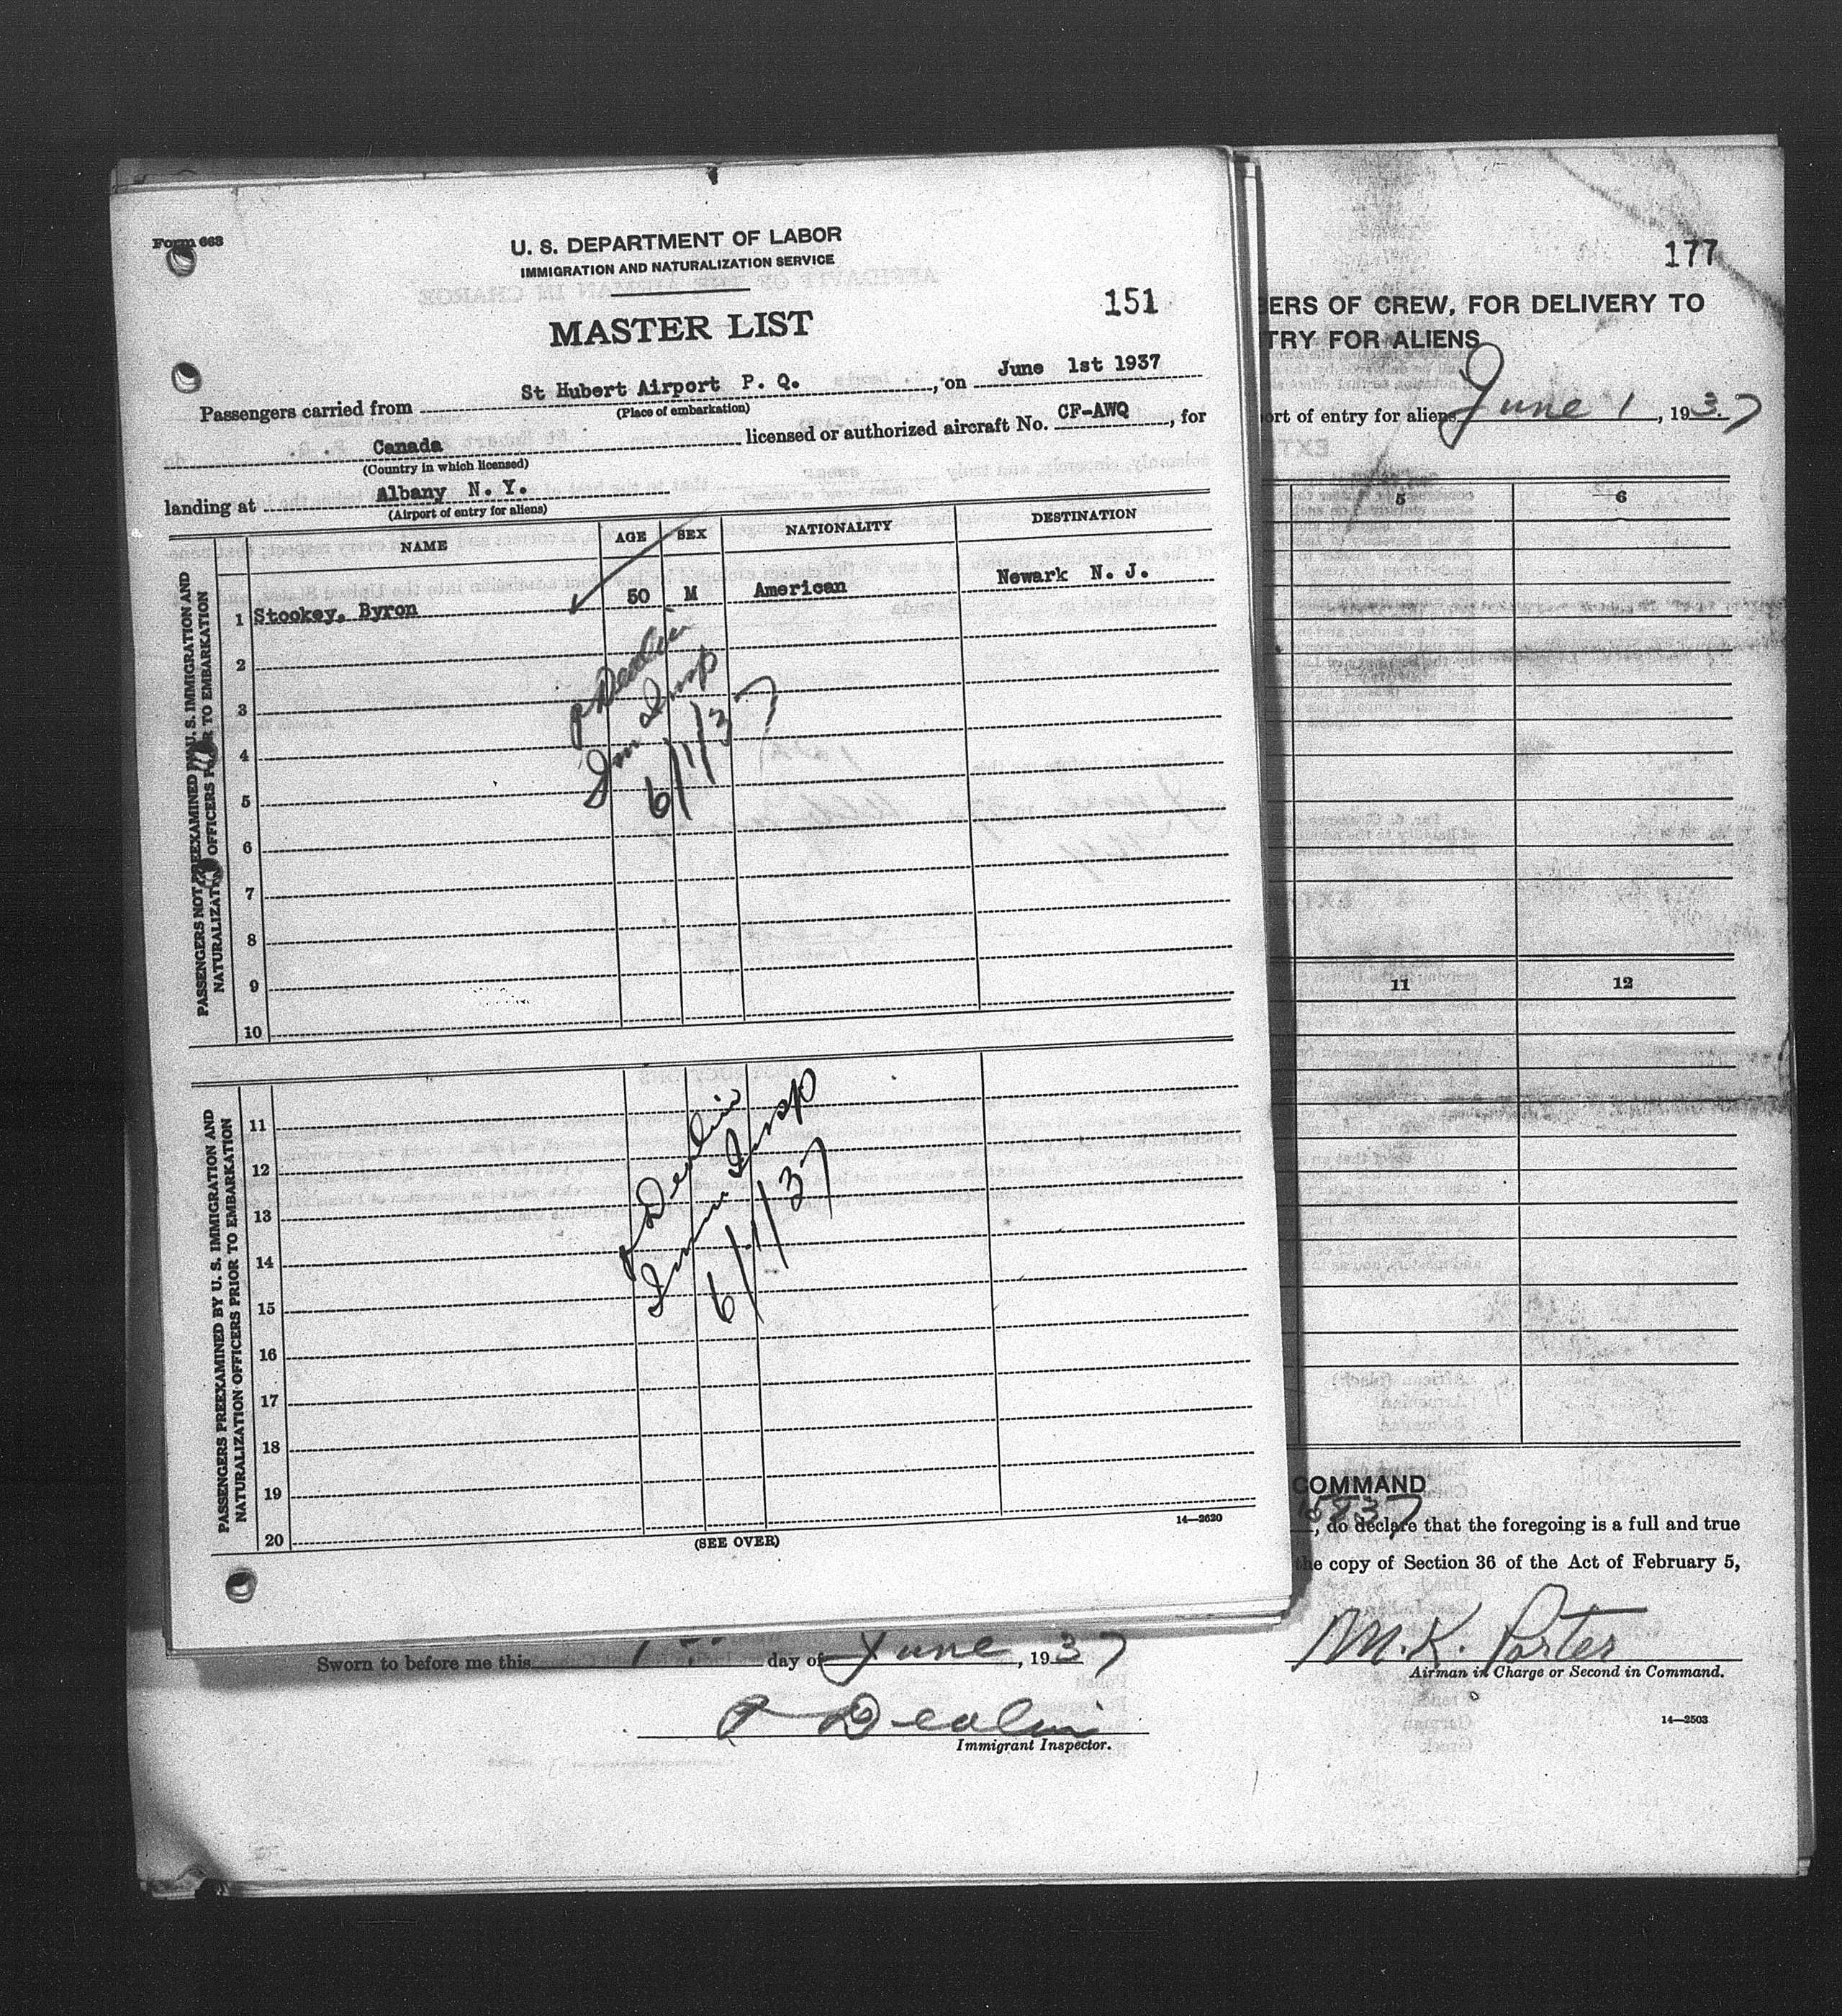 Form 668
U. S. DEPARTMENT OF LABOR
IMMIGRATION AND NATURALIZATION SERVICE
MASTER LIST
151
Passengers carried from St Hubert Airport P. Q., on June 1st 1937
(Place of embarkation)
Canada licensed or authorized aircraft No. CF-AWQ, for
(Country in which licensed)
landing at Albany N. Y.
(Airport of entry for aliens)
NAME AGE SEX NATIONALITY DESTINATION
PASSENGERS NOT PREEXAMINED BY U. S. IMMIGRATION AND
NATURALIZATION OFFICERS PRIOR TO EMBARKATION
1 Stookey, Byron 50 M American Newark N. J.
2
3
4
5
6
7
8
9
10
Imm Insp
6/1/37
PASSENGERS PREEXAMINED BY U. S. IMMIGRATION AND
NATURALIZATION OFFICERS PRIOR TO EMBARKATION
11
12
13
14
15
16
17
18
19
20
Imm Insp
6/1/37
(SEE OVER)
14—2620
177
BERS OF CREW, FOR DELIVERY TO
TRY FOR ALIENS
ort of entry for aliens June 1, 1937
5 6
11 12
COMMAND
15837
, do declare that the foregoing is a full and true
the copy of Section 36 of the Act of February 5,
M. K. Porter
Airman in Charge or Second in Command.
14—2503
Sworn to before me this 1st day of June, 1937
Immigrant Inspector.